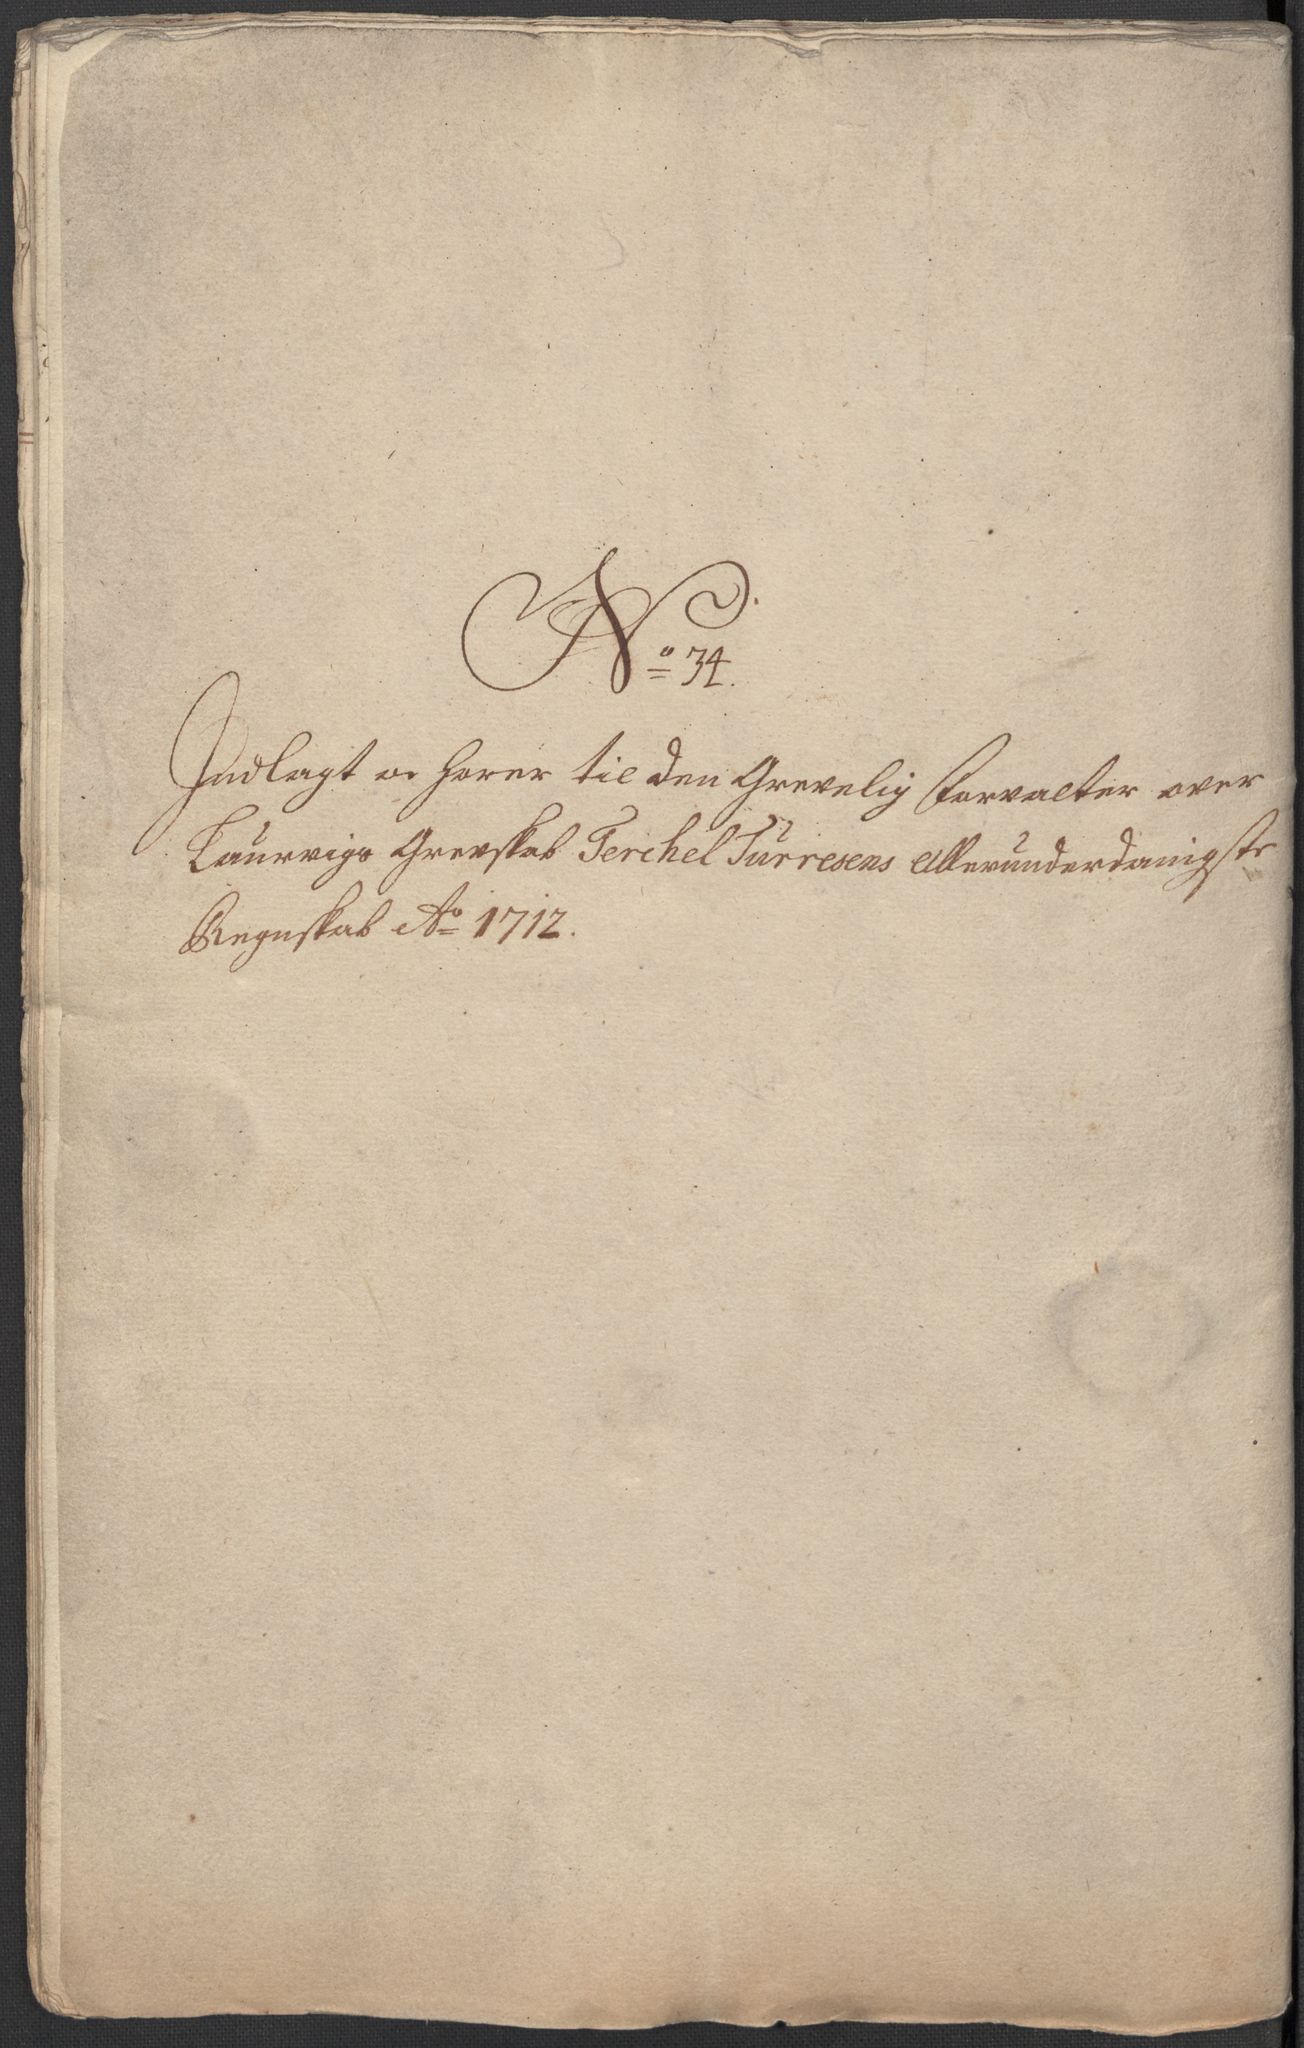 No 34.
Indlagt oc hører til den Grevelig Forvalter over
Laurvigs Grevskab Terchel Türresens allerunderdanigste
Regnskab Ao 1712.